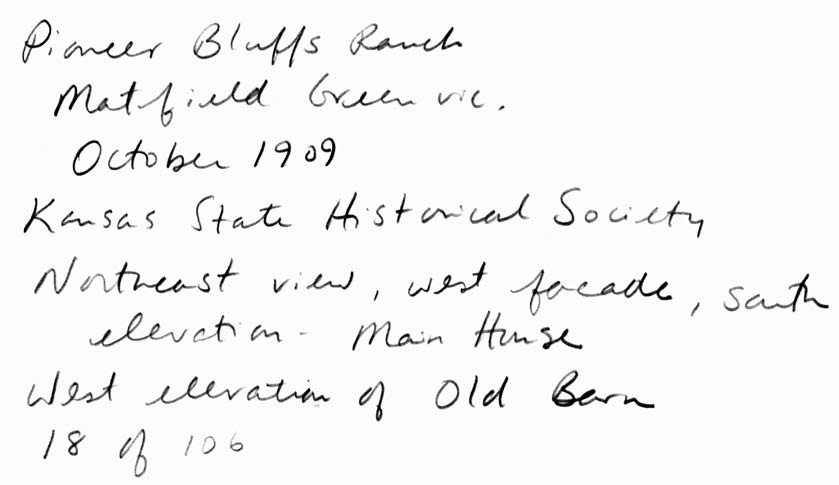 Pioneer Bluffs Ranch
Matfield Green vic.
October 1909
Kansas State Historical Society
Northeast view, west facade, south
elevation - Main House
West elevation of Old Barn
18 of 106